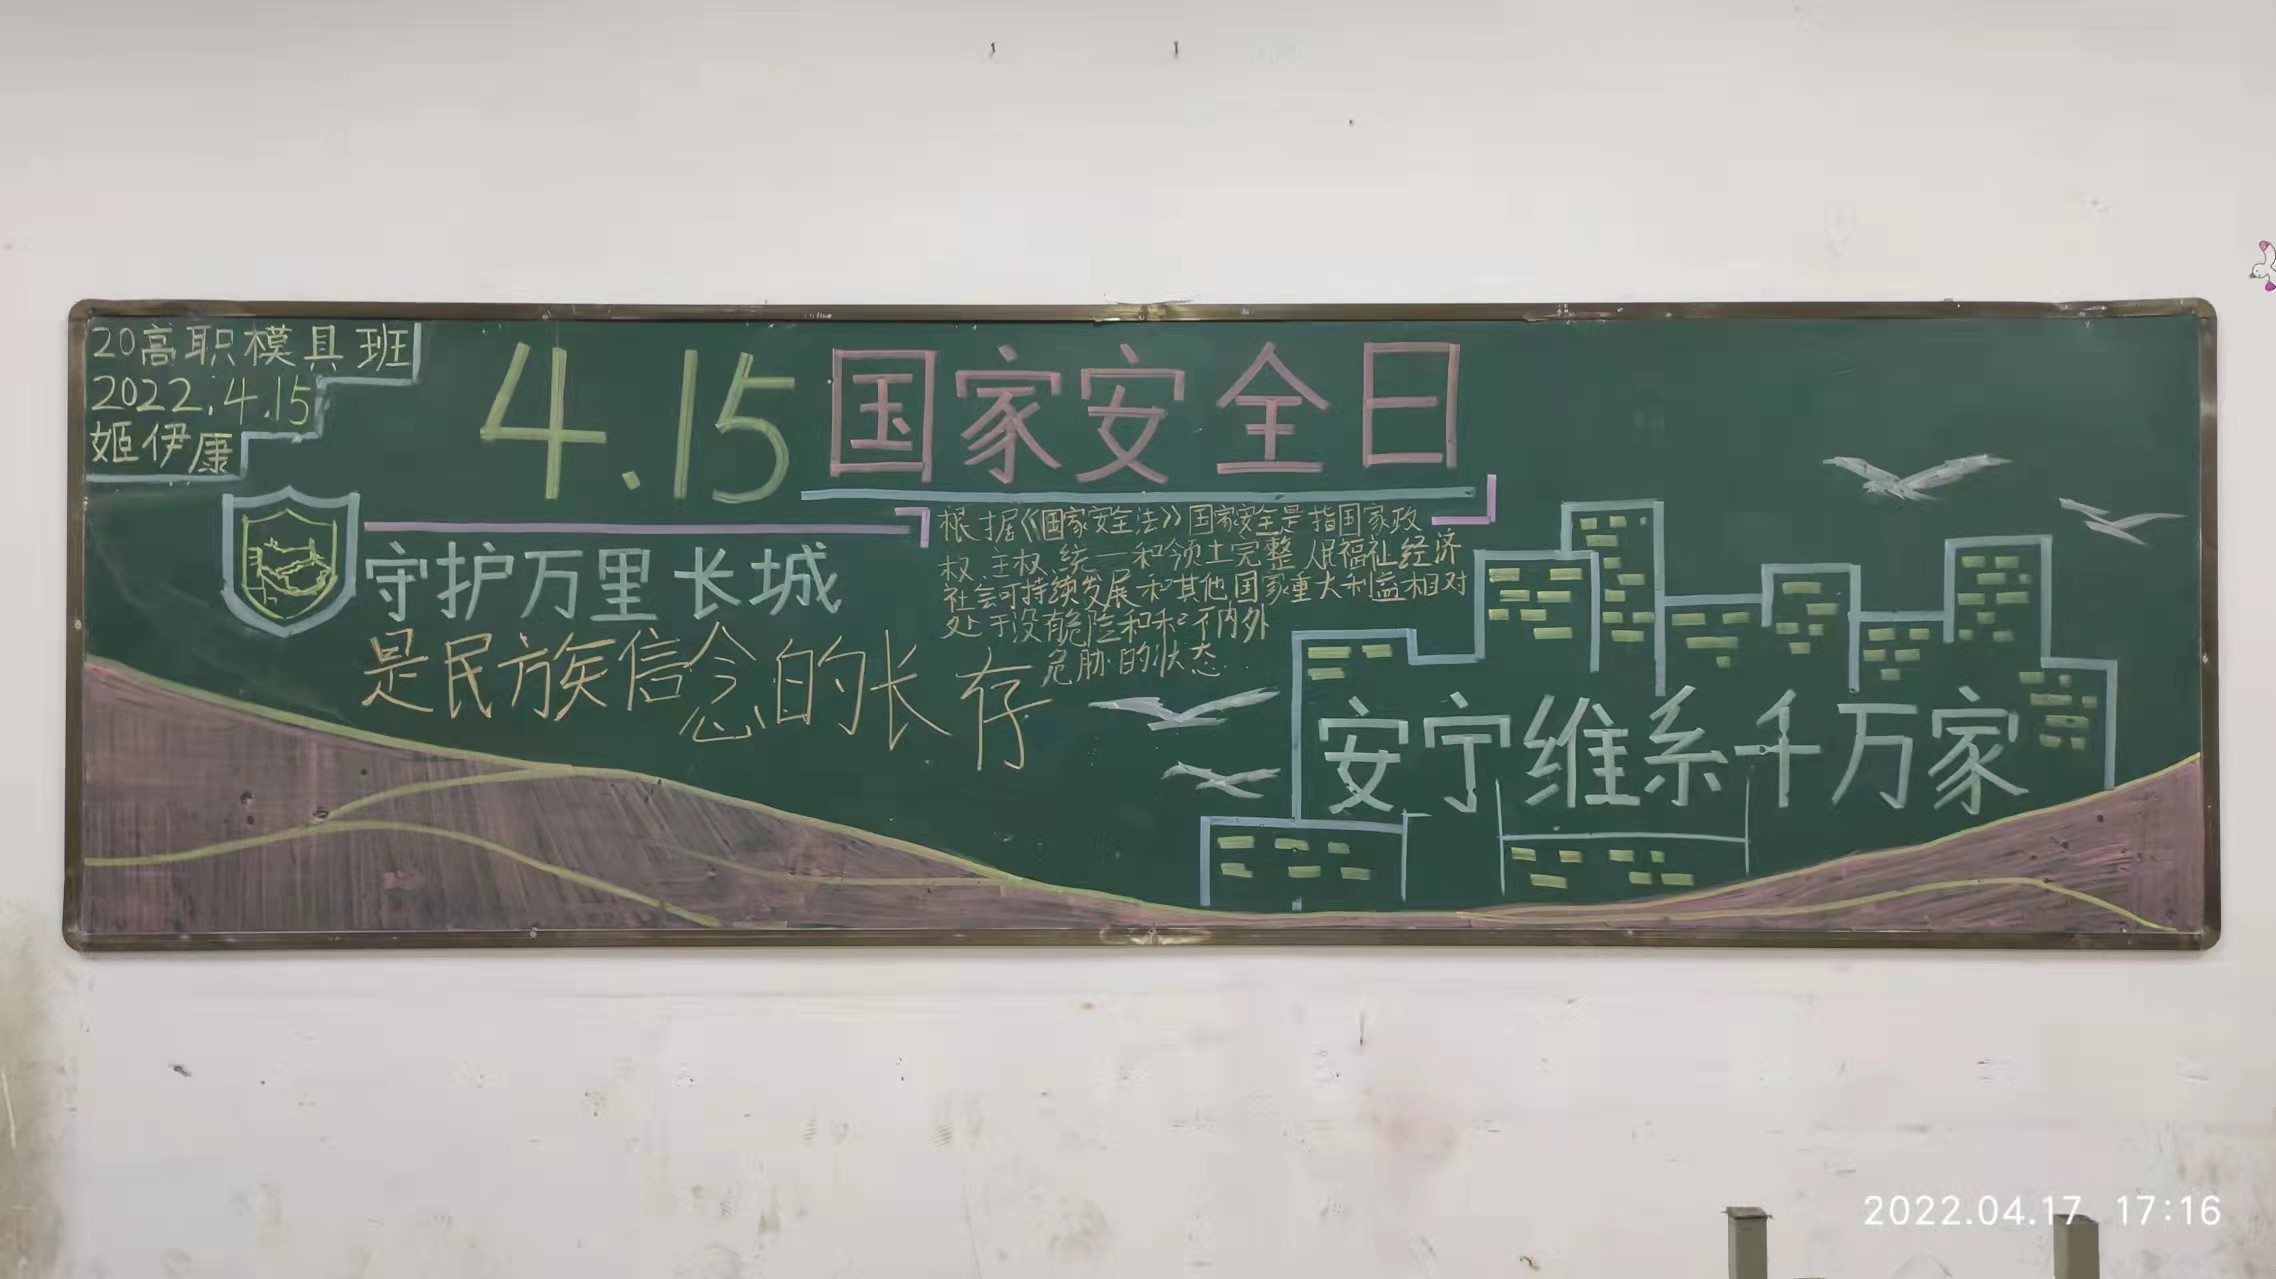 20高职模具班
2022.4.15
姬伊康
4.15国家安全日
守护万里长城
是民族信念的长存
根据《国家安全法》国家安全是指国家政
权、主权、统一和领土完整 人民福祉经济
社会可持续发展和其他国家重大利益相对
处于没有危险和不内外
危胁的状态.
安宁维系千万家
2022.04.17 17:16